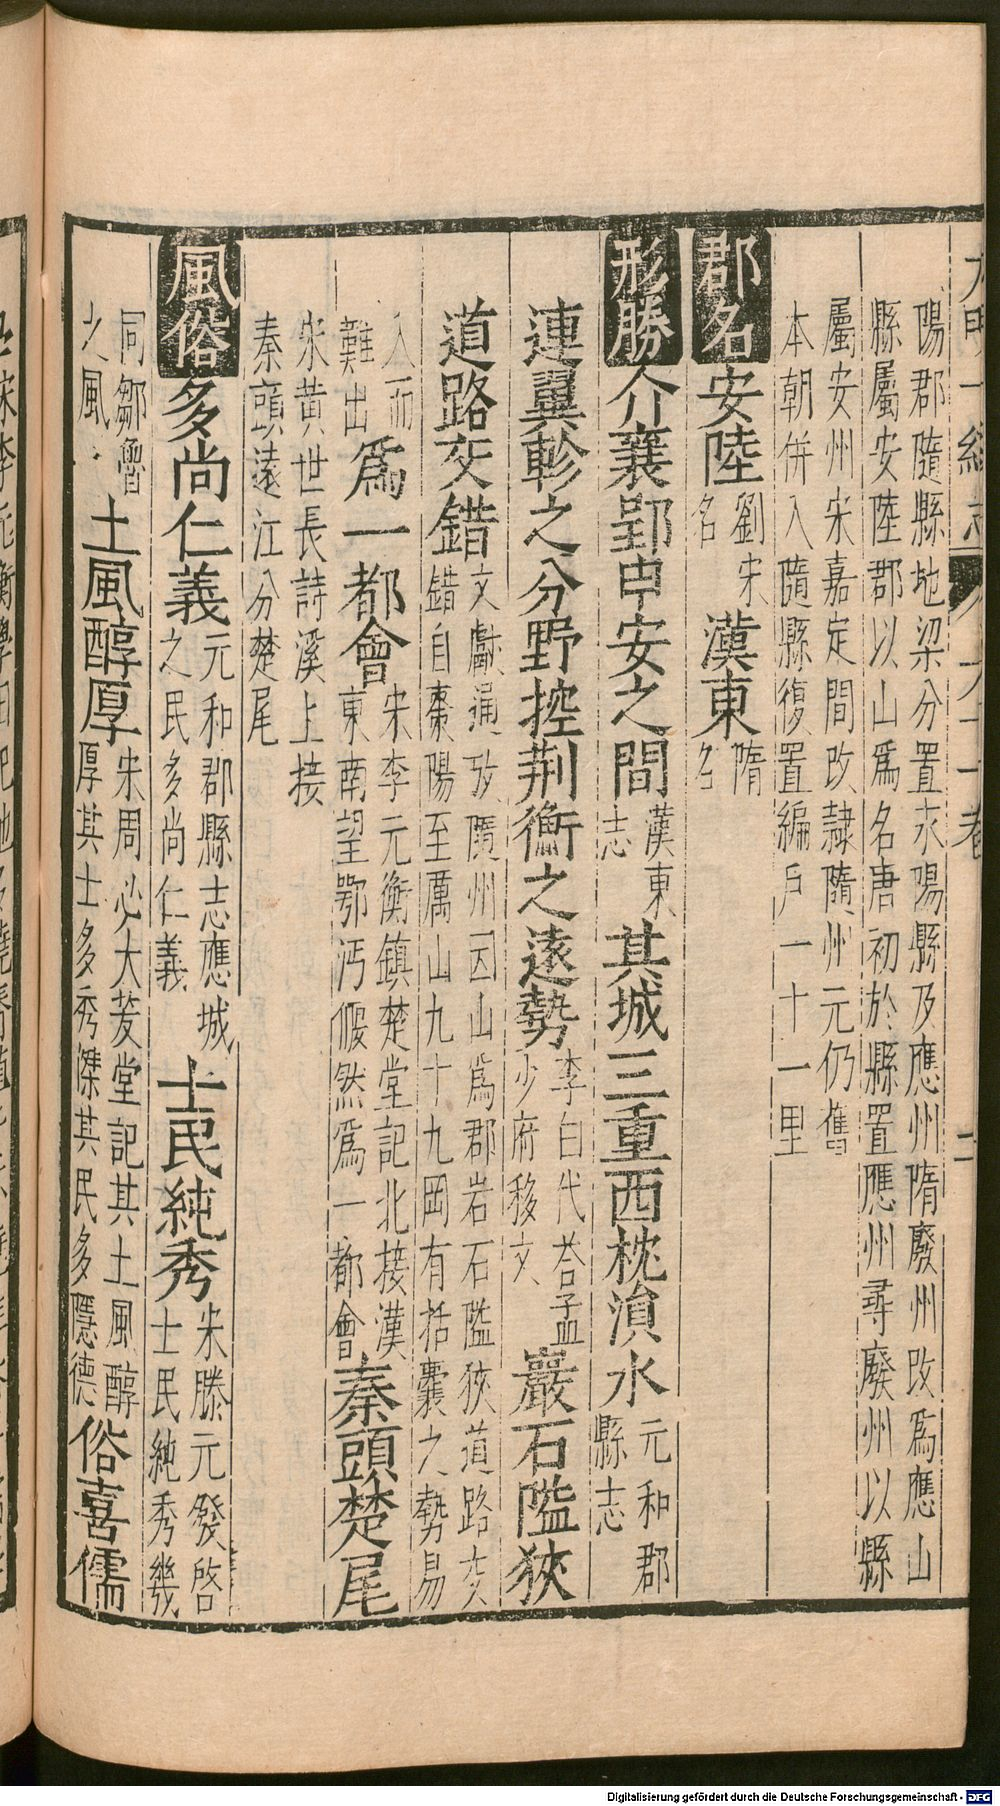 陽郡隨縣地梁分置永陽縣及應州隋廢州改爲應山
縣屬安陸郡以山爲名唐初於縣置應州尋廢州以縣
屬安州宋嘉定間改隸隨州元仍舊
本朝併入隨縣復置編戶一十一里
郡名安陸劉宋名漢東隋名
形勝介襄郢申安之間漢東志其城三重西枕溳水元和郡縣志
連翼軫之分野控荆衡之遠勢李白代荅孟少府移文巖石隘狹
道路交錯文獻通攷隨州因山爲郡岩石隘狹道路交錯自棗陽至厲山九十九岡有括囊之勢易
入而難出爲一都會宋李元衡鎮楚堂記北接漢東南望鄂沔儼然爲一都會秦頭楚尾
宋黄世長詩溪上接秦頭遠江分楚尾
風俗多尚仁義元和郡縣志應城之民多尚仁義士民純秀宋滕元發啓士民純秀幾
同鄒魯之風土風醇厚宋周必大芰堂記其土風醇厚其士多秀傑其民多隱德俗喜儒
大明一統志 卷六十一 二
Digitalisierung gefördert durch die Deutsche Forschungsgemeinschaft - DFG